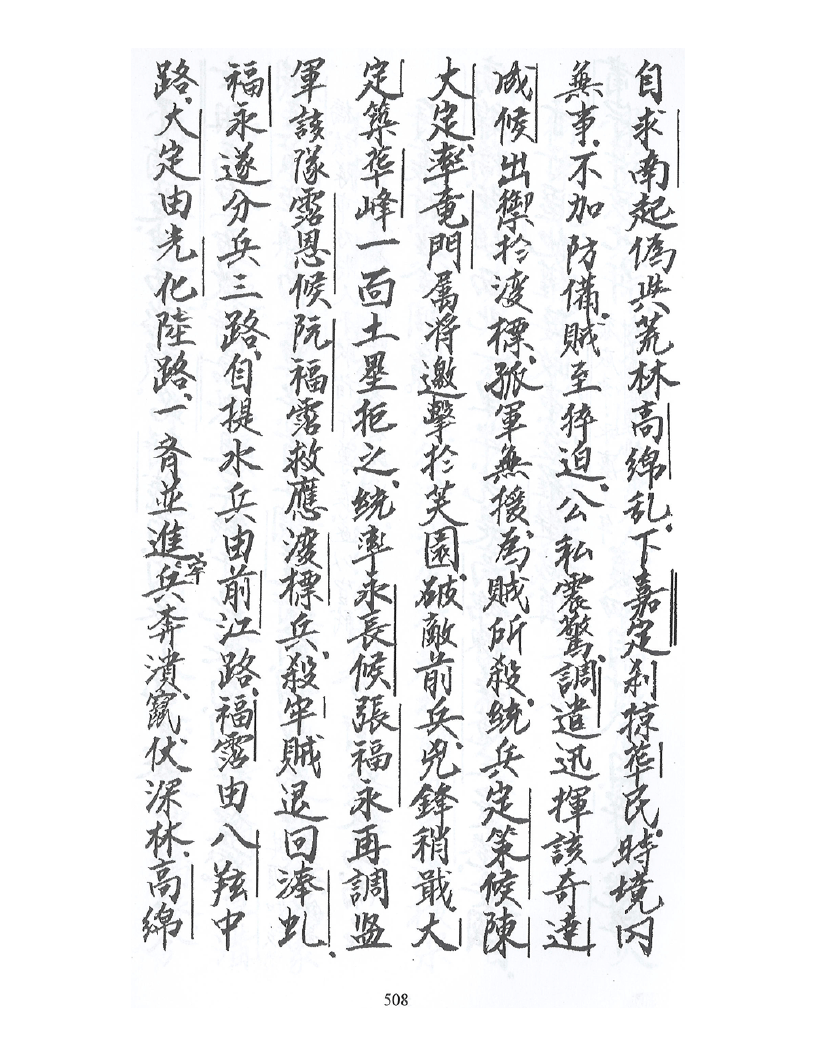 自求南起偽兵荒林高綿乱下嘉定刹掠華民時境内
無事不加防備賊至猝迫公私震驚調遣迅揮該奇達
成候出禦於淩標孤軍無援為賊所殺統兵定策候陳
大定率竜門属将邀擊於芺園破敵前兵兇鋒稍戢大
定築華峰一面土壘拒之統率永長候張福永再調监
軍該隊霑恩候阮福霑救應淩標兵殺牢賊退回漨虬
福永遂分兵三路自提水兵由前江路福霑由八𦍛中
路大定由光化陸路一齊並進牢兵奔潰竄伏深林高綿
508